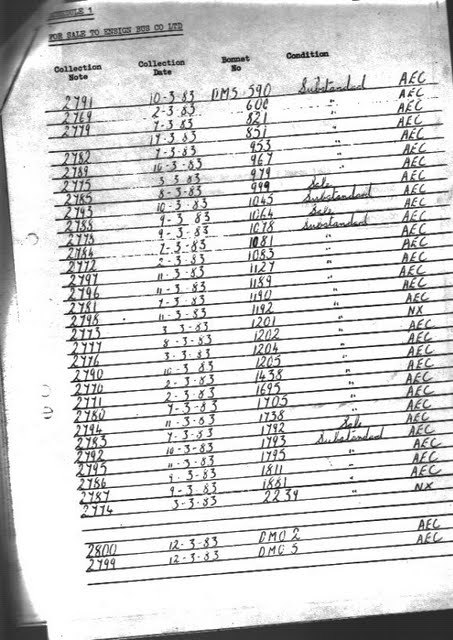 SCHEDULE 1
FOR SALE TO ENSIGN BUS CO LTD
Collection Note Collection Date Bonnet No Condition
2791 10-3-83 DMS 590 Substandad AEC
2769 2-3-83 600 " AEC
2779 7-3-83 821 " AEC
17-3-83 851 " AEC
2782 7-3-83 953 " AEC
2789 10-3-83 967 " AEC
2775 3-3-83 979 " AEC
2785 8-3-83 999 Sale AEC
2793 10-3-83 1045 Substandad AEC
2788 9-3-83 1064 Sale AEC
2778 9-3-83 1078 Substandad AEC
2784 7-3-83 1081 " AEC
2772 2-3-83 1083 " AEC
2797 11-3-83 1127 " AEC
2796 11-3-83 1189 " AEC
2781 7-3-83 1190 " AEC
2798 11-3-83 1192 " AEC
2773 3-3-83 1201 " NX
2777 8-3-83 1202 " AEC
2776 3-3-83 1204 " AEC
2790 10-3-83 1205 " AEC
2770 2-3-83 1438 " AEC
2771 2-3-83 1695 " AEC
2780 7-3-83 1705 " AEC
2794 11-3-83 1738 " AEC
2783 7-3-83 1792 Sale AEC
2792 10-3-83 1793 Substandad AEC
2795 11-3-83 1795 " AEC
2786 9-3-83 1811 " AEC
2787 9-3-83 1881 " AEC
2774 3-3-83 2239 " NX
2800 12-3-83 DMO 2 AEC
2799 12-3-83 DMO 5 AEC